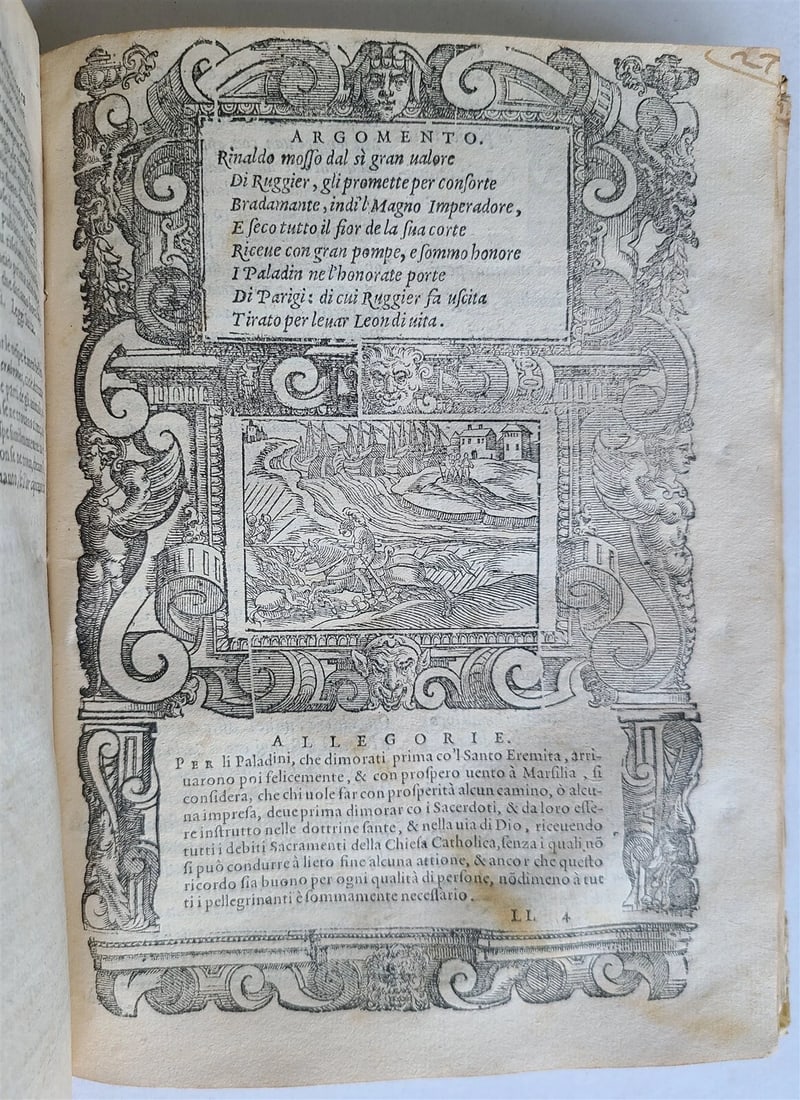 27
ARGOMENTO.
Rinaldo moſſo dal sì gran ualore
Di Ruggier, gli promette per conſorte
Bradamante, indi'l Magno Imperadore,
E ſeco tutto il fior de la ſua corte
Riceue con gran pompe, e ſommo honore
I Paladin ne l'honorate porte
Di Parigi: di cui Ruggier fa uſcita
Tirato per leuar Leon di uita.
ALLEGORIE.
PER li Paladini, che dimorati prima co'l Santo Eremita, arri-
uarono poi felicemente, & con proſpero uento à Marſilia, ſi
conſidera, che chi uole far con proſperità alcun camino, ò alcu-
na impreſa, deue prima dimorar co i Sacerdoti, & da loro eſſe-
re inſtrutto nelle dottrine ſante, & nella uia di Dio, riceuendo
tutti i debiti Sacramenti della Chieſa Catholica, ſenza i quali nõ
ſi può condurre à lieto fine alcuna attione, & ancor che queſto
ricordo ſia buono per ogni qualità di perſone, nõdimeno à tut
ti i pellegrinanti è ſommamente neceſſario.
LL 4